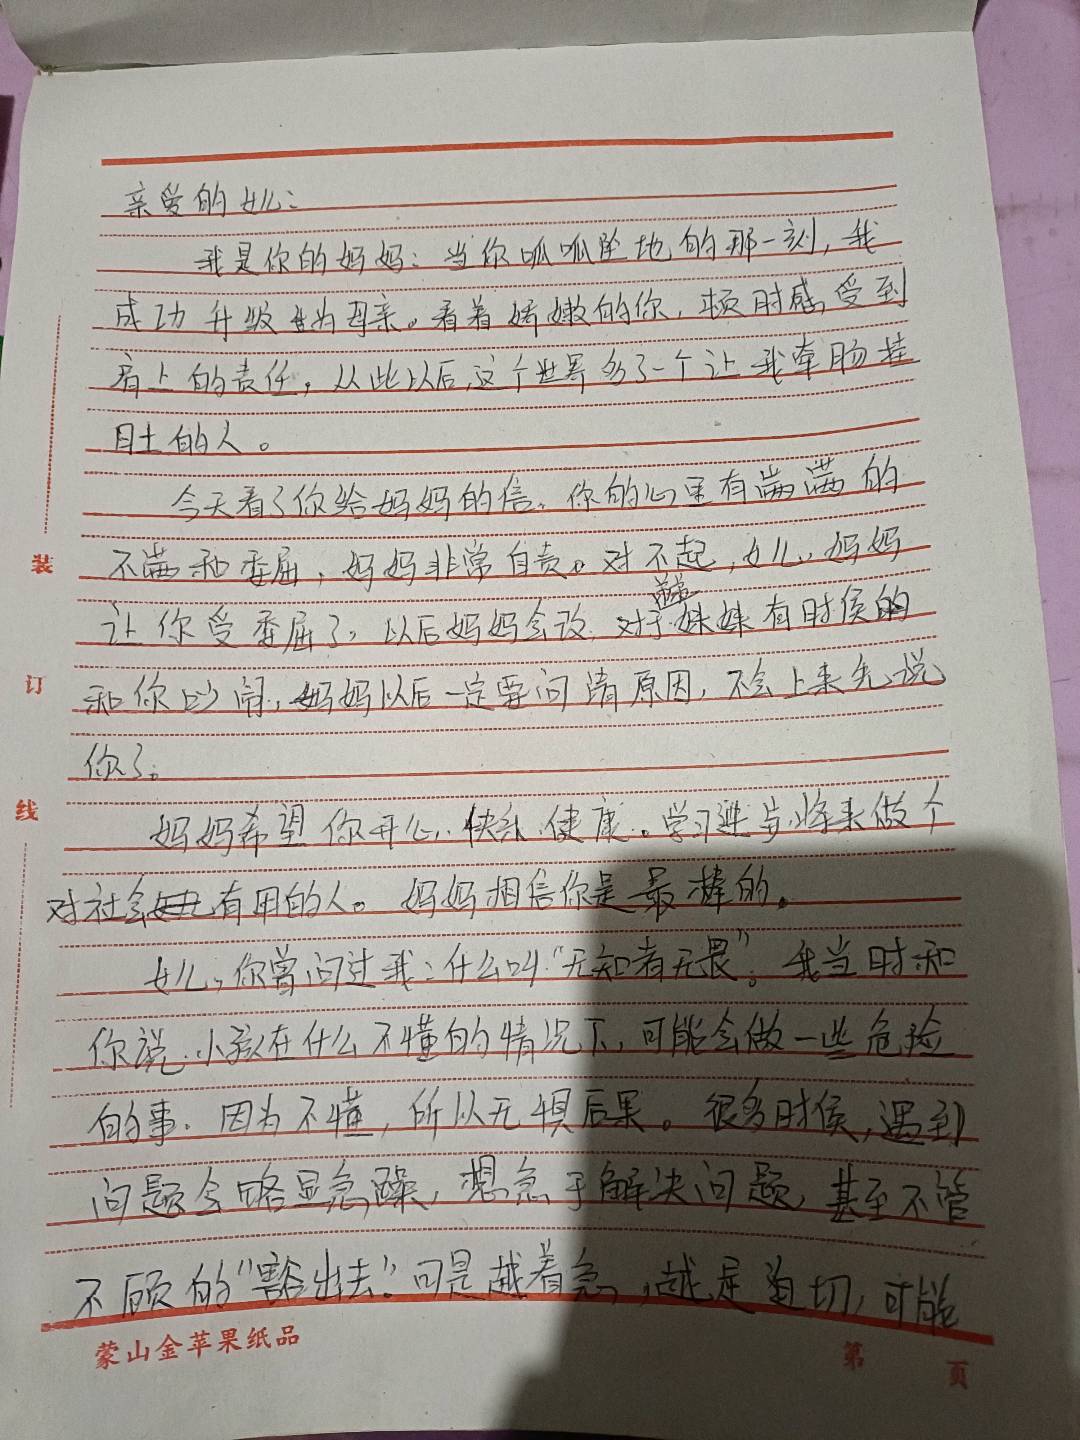 亲爱的女儿:
我是你的妈妈:当你呱呱坠地的那一刻,我
成功升级为母亲。看着娇嫩的你,顿时感受到
肩上的责任,从此以后,这个世界多了一个让我牵肠挂
肚的人。
今天看了你给妈妈的信,你的心里有满满的
不满和委屈,妈妈非常自责。对不起,女儿,妈妈
让你受委屈了,以后妈妈会改,对于妹妹有时候的
和你吵闹,妈妈以后一定要问清原因,不会上来先说
你了。
妈妈希望你开心、快乐、健康。学习进步,将来做个
对社会有用的人。妈妈相信你是最棒的。
女儿,你曾问过我:什么叫"无知者无畏"。我当时和
你说,小孩在什么不懂的情况下,可能会做一些危险
的事。因为不懂,所以无惧后果。很多时侯,遇到
问题会略显急躁,想急于解决问题,甚至不管
不顾的"豁出去"。可是越着急,越是迫切,可能
装
订
线
蒙山金苹果纸品
第 页